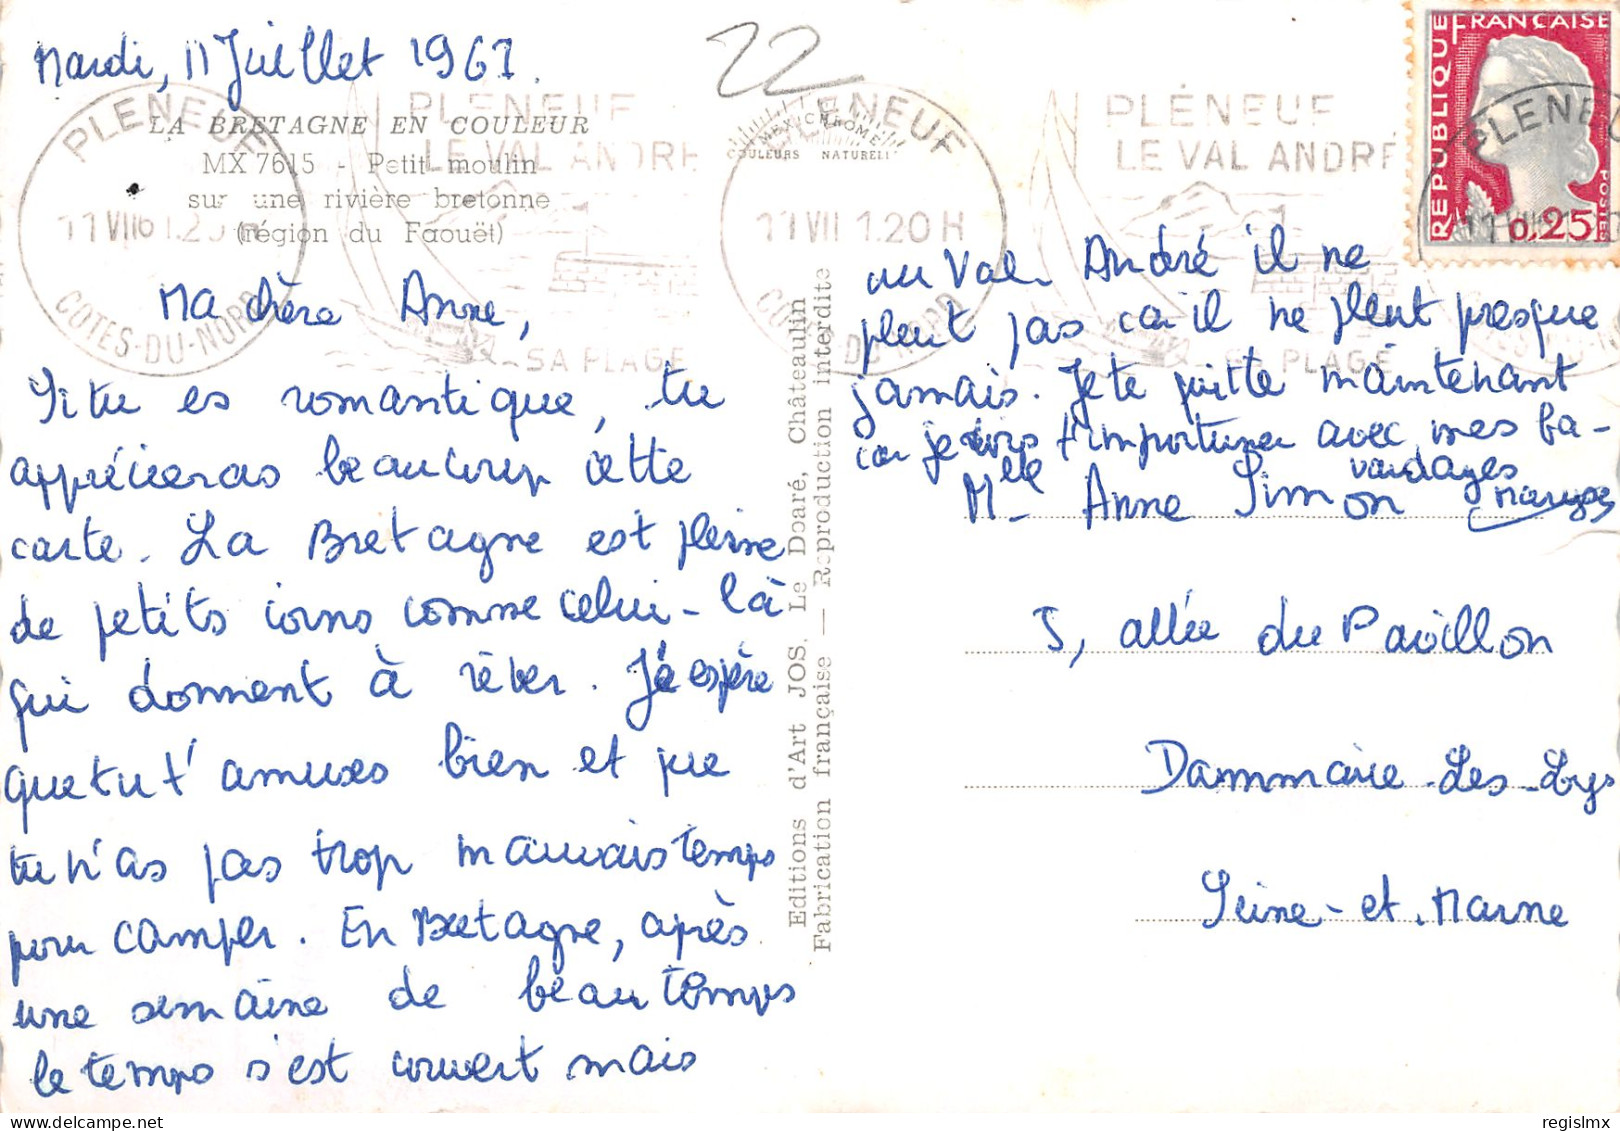 Mardi, 11 Juillet 1961.
22
LA BRETAGNE EN COULEUR
MX 7615 - Petit moulin
sur une rivière bretonne
(région du Faouët)
PLENEUF
11 VII 61.20 H
COTES-DU-NORD
PLÉNEUF
LE VAL ANDRE
SA PLAGE
MEXICHROME
COULEURS NATURELL
PLENEUF
11 VII 1.20 H
COTES-DU-NORD
PLÉNEUF
LE VAL ANDRÉ
SA PLAGE
REPUBLIQUE
FRANÇAISE
POSTES
0,25
PLENEU
Ma chère Anne,
Si tu es romantique, tu
apprécieras beaucoup cette
carte. La Bretagne est pleine
de petits coins comme celui-là
qui donnent à rêver. J'espère
que tu t'amuses bien et que
tu n'as pas trop mauvais temps
pour camper. En Bretagne, après
une semaine de beau temps
le temps s'est couvert mais
au Val André il ne
pleut pas car il ne pleut presque
jamais. Je te quitte maintenant
car je vais t'importuner avec mes ba-
vardages
Maryse
Editions d'Art JOS. Le Doaré, Châteaulin
Fabrication française — Reproduction interdite
Mlle Anne Simon
5, allée du Pavillon
Dammarie-Les-Lys
Seine-et-Marne
regislmx